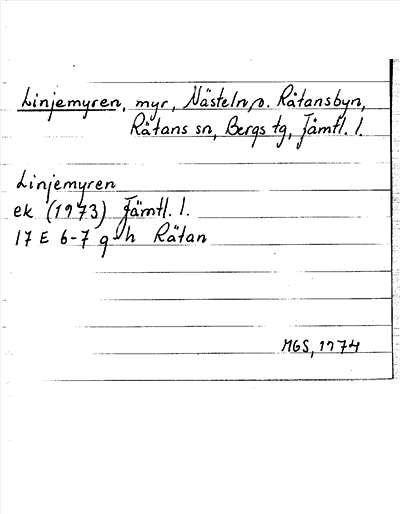 Linjemyren, myr, Nästeln, o. Råtansbyn,
Råtans sn, Bergs tg, Jämtl. l.
Linjemyren
ek (1973) Jämtl. l.
17 E 6-7 g-h Råtan
MGS, 1974